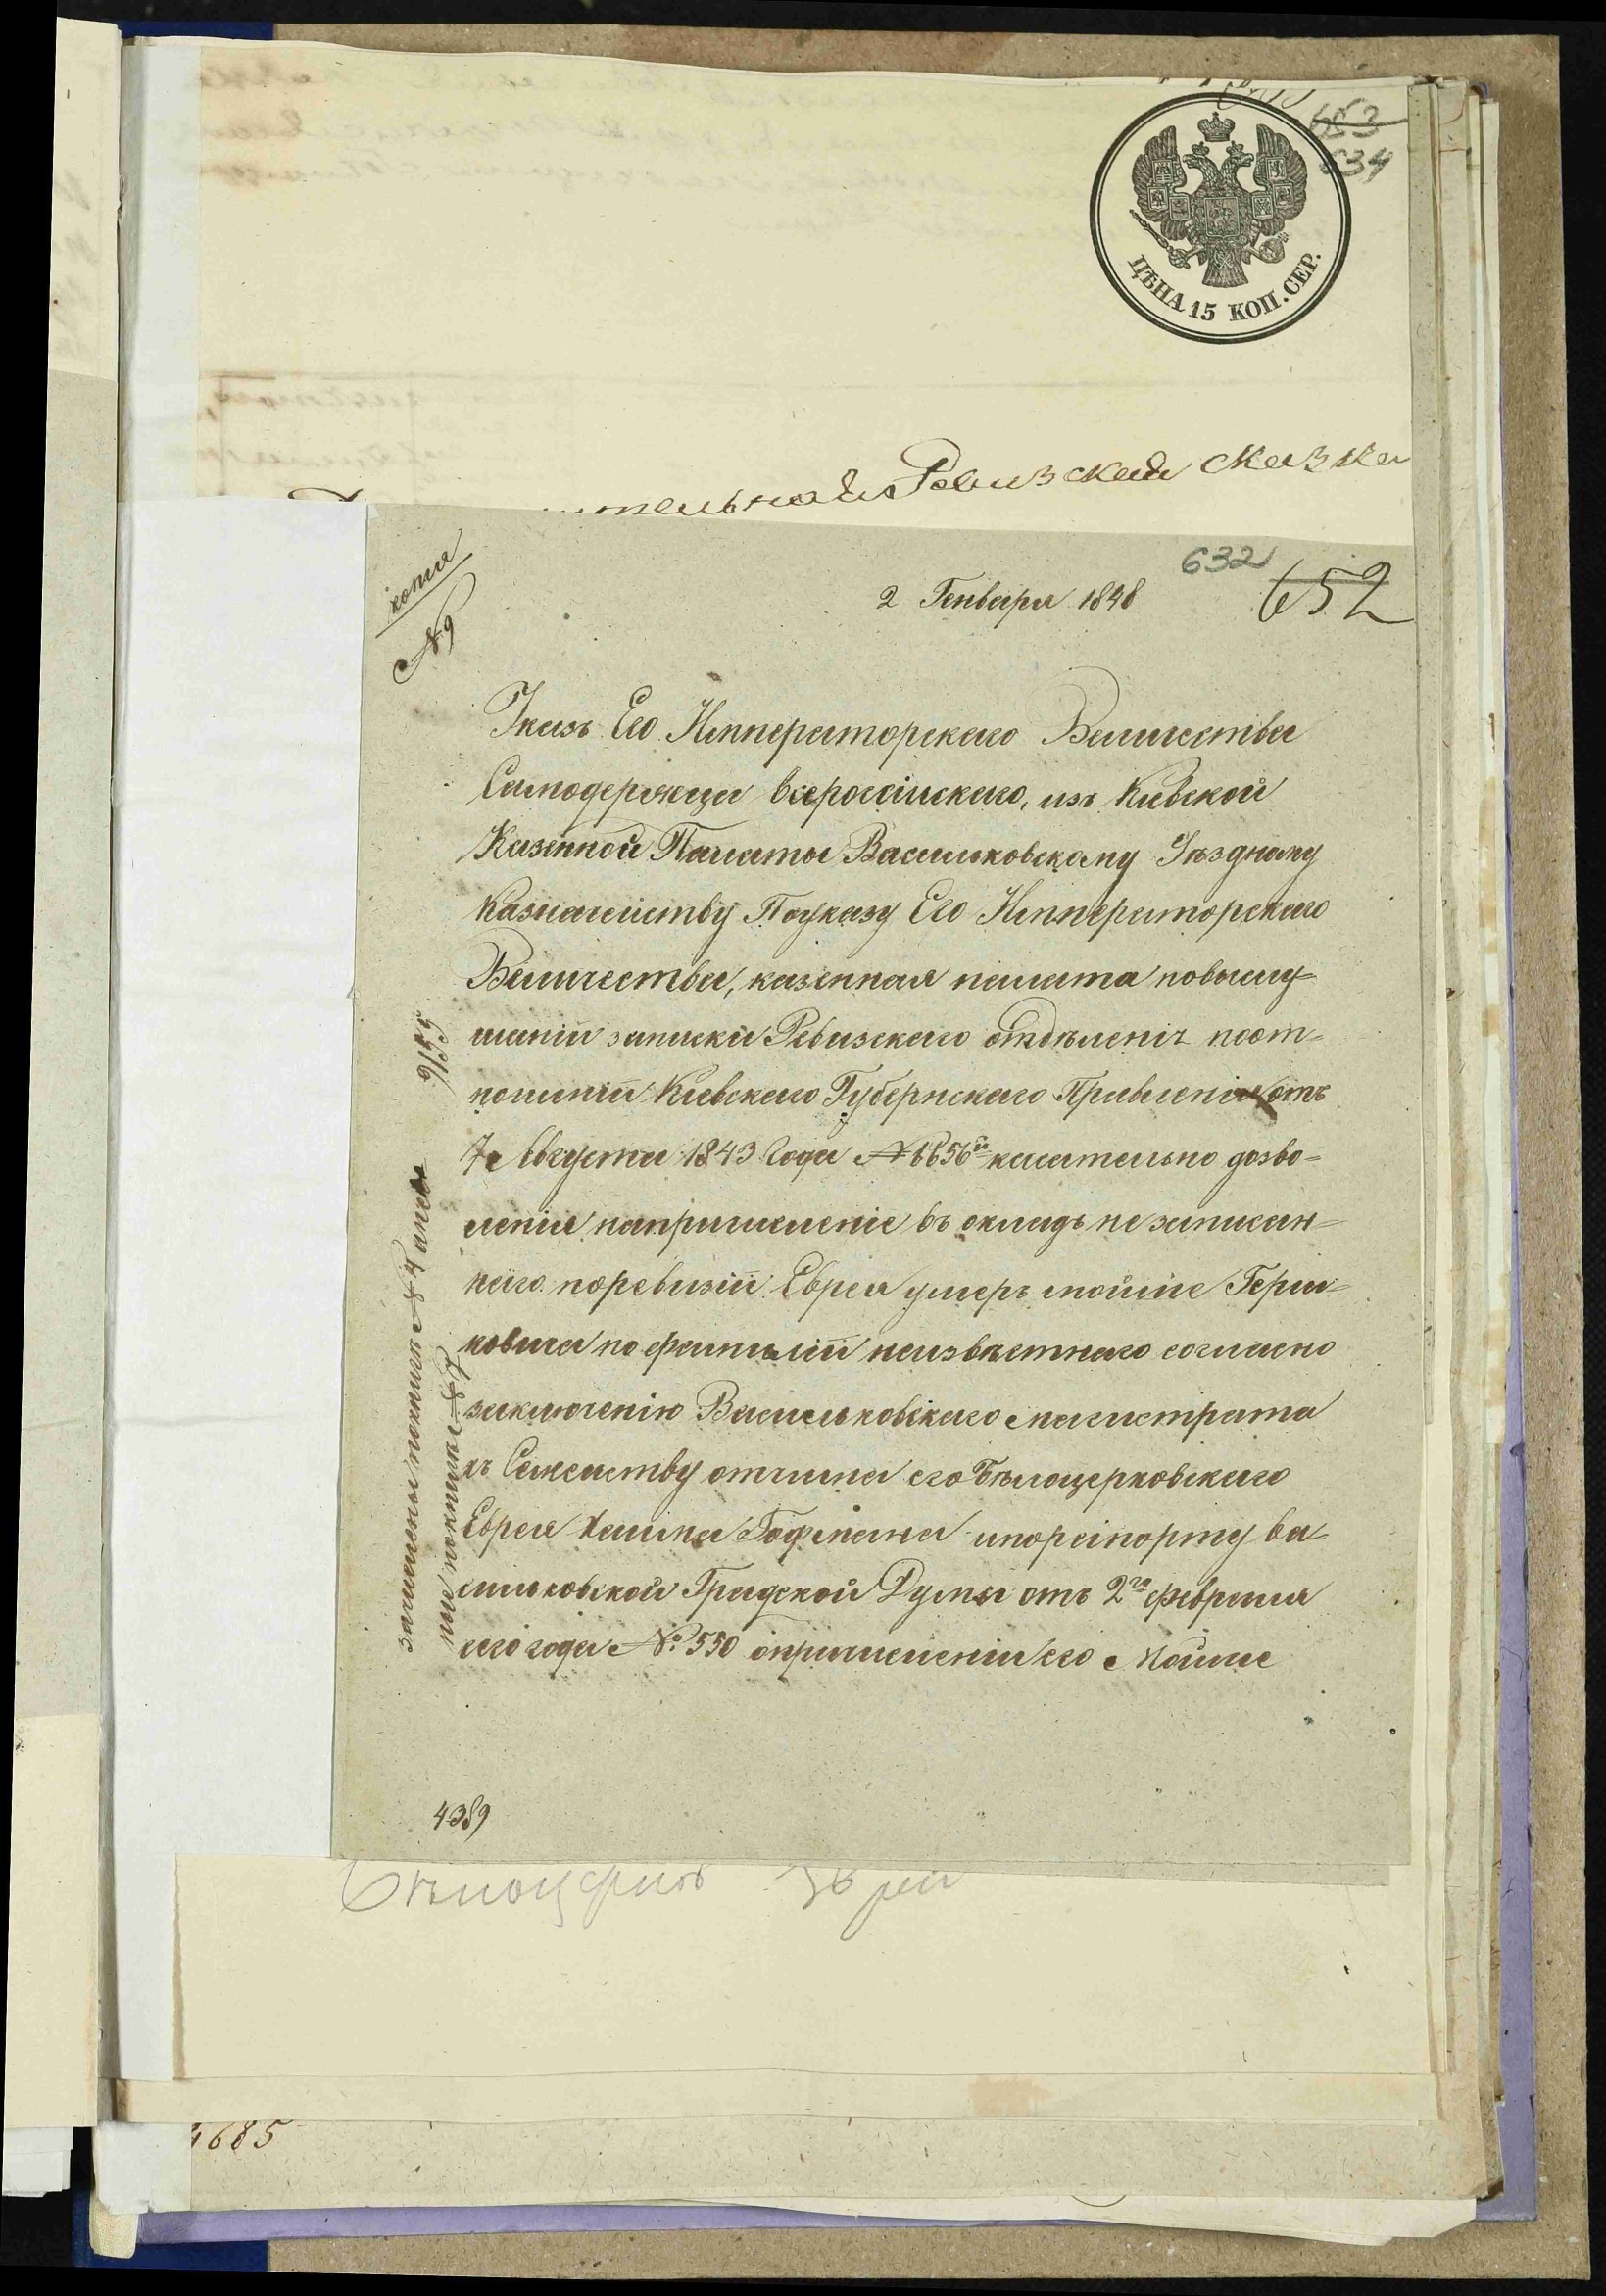 653
634
ЦѢНА 15 КОП. СЕР.
Ревизской сказки
копия
№ 9
632
652
2 Генваря 1848
Указъ Его Императорскаго Величества
Самодержца всероссійскаго, изъ Киевской
Казенной Палаты Васильковскому Уѣздному
Казначейству Поуказу Его Императорскаго
Величества, казенная палата повыслу-
шаніи записки Ревизскаго отдѣленія поот-
ношенію Киевскаго Губернскаго Правленія отъ
7 Августа 1843 года № касательно дозво-
ленія напричисленіе въ окладъ не записан-
наго поревизіи Еврея умеръ мойше Герш-
ковича по фамиліи неизвѣстнаго согласно
заключенію Васильковскаго магистрата
къ Семейству отчима его Бѣлоцерковскаго
Еврея Хаима Гофмана ипорапорту ва-
сильковской Градской Думы отъ 2го февраля
сего года № 550 опричисленіи его Мойше
4389
9/155
4685